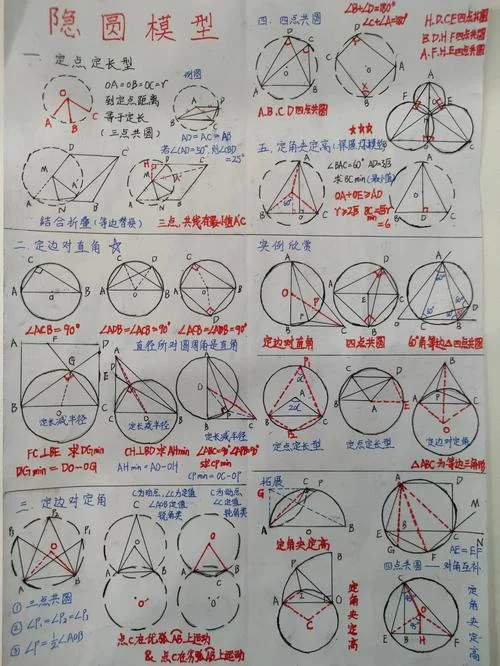 隐圆模型
一 定点定长型
OA=OB=OC=r
到定点距离
等于定长
(三点共圆)
例图
AD=AC=AB
若∠CAD=50°,则∠CBD
=25°
结合折叠(等边替换)
三点共线有最小值A'C
二. 定边对直角 ☆
∠ACB=90°
∠ADB=∠ACB=90°
∠ACB=∠ADB=90°
直径所对圆周角是直角
定长减半径
定长减半径
定长减半径
FC⊥BE 求DGmin
DGmin=DO-OG
CH⊥BD求AHmin
AHmin=AO-OH
∠ABC=90°∠APB=90°
求CPmin
CPmin=OC-OP
三. 定边对定角
C为动点,∠C为定值
∠AOB定值
锐角类
C为动点,
∠C定值
钝角类
① 三点共圆
② ∠P₁=∠P₂=∠P₃
③ ∠P=½∠AOB
点C在优弧AB上运动
& 点C在劣弧AB上运动
四. 四点共圆
∠B+∠D=180°
∠C+∠A=180°
A.B.C.D四点共圆
H.D.C.E四点共圆
B.D.H.F四点共圆
A.F.H.E四点共圆
★★★
五. 定角定高
∠BAC=60° AD=3√3
求BCmin(最小值)
OA+OE≥AD
r≥2√3 BCmin=√3r
=6
实例欣赏
定边对直角
四点共圆
60°角等边△四点共圆
定点定长型
定点定长型
定边对定角
△ABC为等边三角形
拓展
定角定高
AE=EF
四点共圆——对角互补
定角定高
定角定高